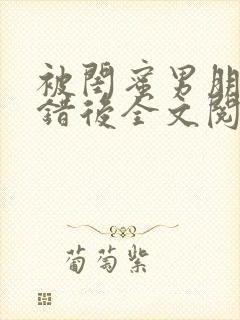 被閨蜜男朋
錯後全文閱
葡萄紫